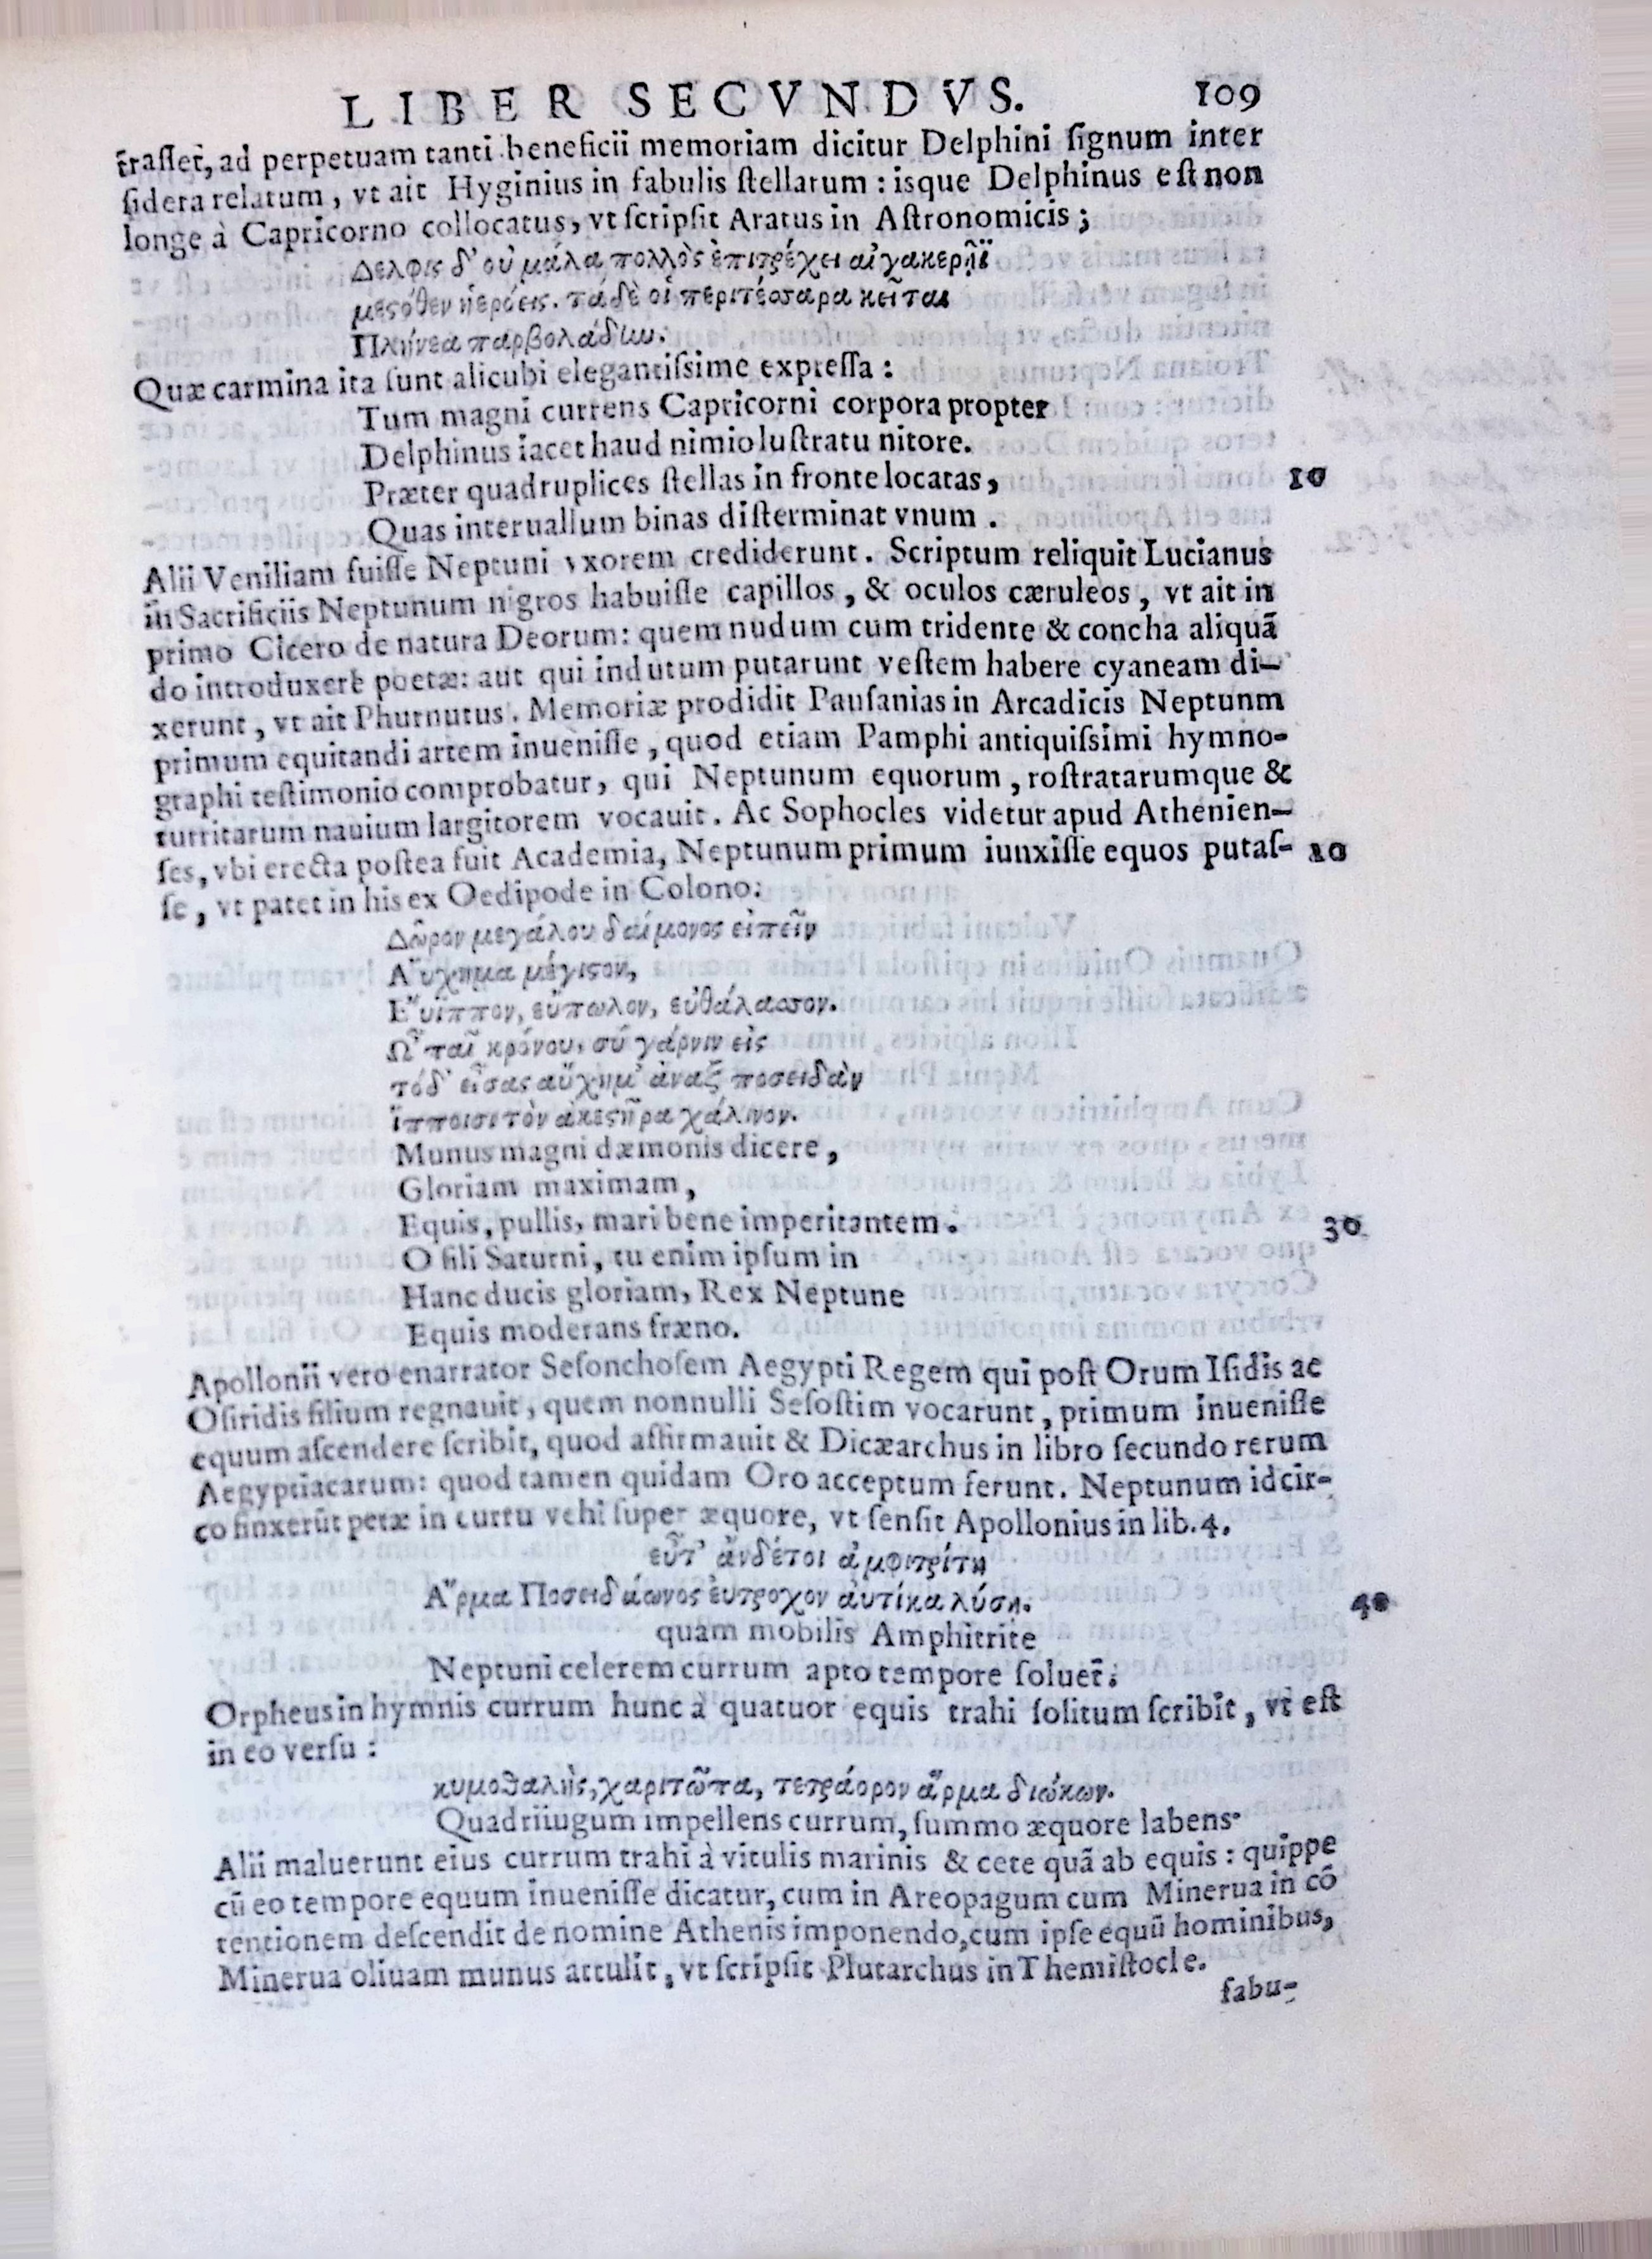 LIBER SECVNDVS. 109
traſſet, ad perpetuam tanti beneficii memoriam dicitur Delphini ſignum inter
ſidera relatum, vt ait Hyginius in fabulis ſtellarum: isque Delphinus eſt non
longe à Capricorno collocatus, vt ſcripſit Aratus in Aſtronomicis;
Δελφὶς δ' οὐ μάλα πολλὸς ἐπιτρέχει αἰγακερῆϊ
μεσόθεν ἠερόεις. τὰ δὲ οἱ περιτέσσαρα κεῖται
Πλήνεα παρβολάδην.
Quæ carmina ita ſunt alicubi elegantiſsime expreſſa:
Tum magni currens Capricorni corpora propter
Delphinus iacet haud nimio luſtratu nitore.
Præter quadruplices ſtellas in fronte locatas, 10
Quas interuallum binas diſterminat vnum.
Alii Veniliam fuiſſe Neptuni vxorem crediderunt. Scriptum reliquit Lucianus
in Sacrificiis Neptunum nigros habuiſſe capillos, & oculos cæruleos, vt ait in
primo Cicero de natura Deorum: quem nudum cum tridente & concha aliquã
do introduxere poetæ: aut qui indutum putarunt veſtem habere cyaneam di-
xerunt, vt ait Phurnutus. Memoriæ prodidit Pauſanias in Arcadicis Neptunm
primum equitandi artem inueniſſe, quod etiam Pamphi antiquiſsimi hymno-
graphi teſtimonio comprobatur, qui Neptunum equorum, roſtratarumque &
turritarum nauium largitorem vocauit. Ac Sophocles videtur apud Athenien-
ſes, vbi erecta poſtea fuit Academia, Neptunum primum iunxiſſe equos putaſ- 20
ſe, vt patet in his ex Oedipode in Colono:
Δῶρον μεγάλου δαίμονος εἰπεῖν
Αὔχημα μέγιστον,
Εὔϊππον, εὔπωλον, εὐθάλασσον.
Ὦ παῖ κρόνου, σὺ γάρνιν εἰς
τόδ' εἷσας αὔχημ' ἀναξ ποσειδὰν
ἵπποισι τὸν ἀκεστῆρα χάλινον.
Munus magni dæmonis dicere,
Gloriam maximam,
Equis, pullis, mari bene imperitantem. 30
O fili Saturni, tu enim ipſum in
Hanc ducis gloriam, Rex Neptune
Equis moderans fræno.
Apollonii vero enarrator Seſonchoſem Aegypti Regem qui poſt Orum Iſidis ac
Oſiridis filium regnauit, quem nonnulli Seſoſtim vocarunt, primum inueniſſe
equum aſcendere ſcribit, quod affirmauit & Dicæarchus in libro ſecundo rerum
Aegyptiacarum: quod tamen quidam Oro acceptum ferunt. Neptunum idcir-
co finxerũt petæ in curru vehi ſuper æquore, vt ſenſit Apollonius in lib. 4.
εὖτ' ἄνδέτοι ἀμφιτρίτη
Ἅρμα Ποσειδάωνος ἐυτροχον ἀυτίκα λύση. 40
quam mobilis Amphitrite
Neptuni celerem currum apto tempore ſoluet:
Orpheus in hymnis currum hunc à quatuor equis trahi ſolitum ſcribit, vt eſt
in eo verſu:
κυμοθαλὴς, χαριτῶπα, τετράορον ἅρμα διώκων.
Quadriiugum impellens currum, ſummo æquore labens.
Alii maluerunt eius currum trahi à vitulis marinis & cete quã ab equis: quippe
cũ eo tempore equum inueniſſe dicatur, cum in Areopagum cum Minerua in cõ
tentionem deſcendit de nomine Athenis imponendo, cum ipſe equũ hominibus,
Minerua oliuam munus attulit, vt ſcripſit Plutarchus in Themiſtocle.
fabu-